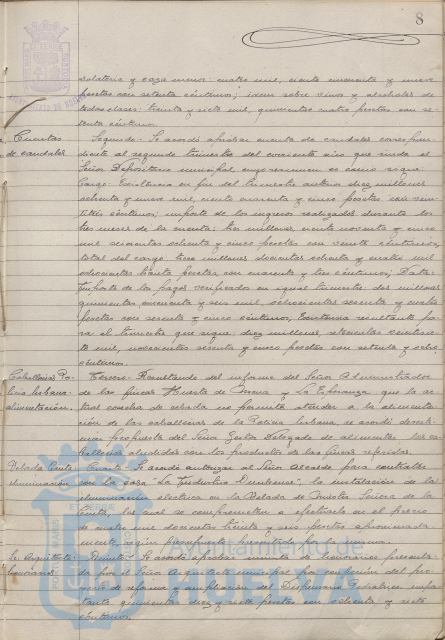 8
solatería y caza menor: cuatro mil, ciento cincuenta y nueve
pesetas con setenta céntimos; idem sobre vinos y alcoholes de
todas clases: treinta y siete mil, quinientas cuatro pesetas con se-
tenta céntimos.
Cuentas
de caudales
Segundo.- Se acordó aprobar cuenta de caudales correspon-
diente al segundo trimestre del corriente año que rinde el
Señor Depositario municipal cuyo resumen es como sigue:
Cargo: Existencia en fin del trimestre anterior diez millones
ochenta y nueve mil, ciento cuarenta y cinco pesetas con vein-
titrés céntimos; importe de los ingresos realizados durante los
tres meses de la cuenta: tres millones, ciento noventa y cinco
mil seiscientas ochenta y cinco pesetas con céntimos,
total del cargo trece millones doscientas ochenta y cuatro mil
ochocientas treinta pesetas con cuarenta y tres céntimos; Data:
Importe de los pagos verificados en igual trimestre: dos millones
quinientas cincuenta y seis mil, ochocientas sesenta y cuatro
pesetas con sesenta y cinco céntimos, Existencia resultante pa-
ra el trimestre que sigue: diez millones, setecientas veintisie-
te mil, novecientas sesenta y cinco pesetas con setenta y ocho
céntimos.
Caballerías Po-
licía Urbana:
alimentación.
Tercero.- Resultando del informe del Señor Administrador
de las fincas Huerta de Mena y La Esperanza que la ac-
tual cosecha de cebada no permite atender a la alimenta-
ción de las caballerías de la Policía Urbana, se acordó deses-
timar propuesta del Señor Gestor Delegado de alimentar las ca-
ballerías aludidas con los productos de las fincas referidas.
Velada Cinta
iluminación
Cuarto.- Se acordó autorizar al Señor Alcalde para contratar
con la casa "La Industria Onubense", la instalación de la
iluminación eléctrica en la Velada de Nuestra Señora de la
Cinta, los cual se comprometen a efectuarla en el precio
de cuatro mil doscientas treinta y seis pesetas aproximada-
mente, según presupuesto presentado por la misma.
Sr. Arquitecto:
honorarios
Quinto.- Se acordó aprobar minuta de honorarios presenta-
da por el Señor Arquitecto municipal por confección del pro-
yecto de reforma y ampliación del Dispensario Pediátrico impor-
tante quinientas diez y siete pesetas con ochenta y siete
céntimos.
Ayuntamiento de
HUELVA